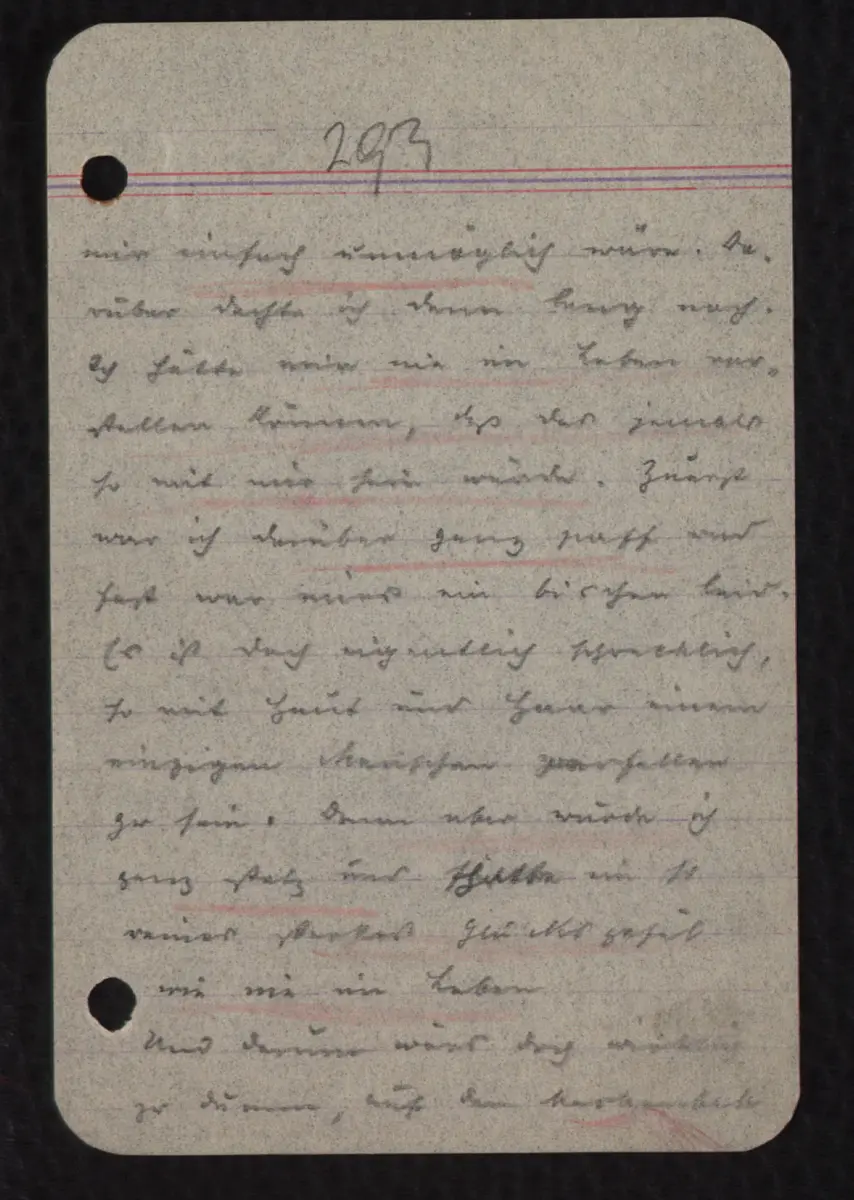 293
mir einfach unmöglich wäre. Da-
rüber dachte ich dann lang nach.
Ich hätte mir nie im Leben vor-
stellen können, daß das jemals
so mit mir sein würde. Zuerst
war ich darüber ganz paff und
fast war mirs ein bischen leid.
Es ist doch eigentlich schrecklich,
so mit Haut und Haar einem
einzigen Menschen verfallen
zu sein. Dann aber wurde ich
ganz stolz und hatte ein so
reines starkes Glücksgefühl
wie nie im Leben
Und darum wärs doch wirklich
zu dumm, auf dem